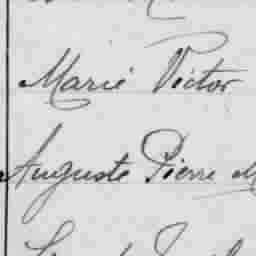 Marie Victor
Auguste Pierre M